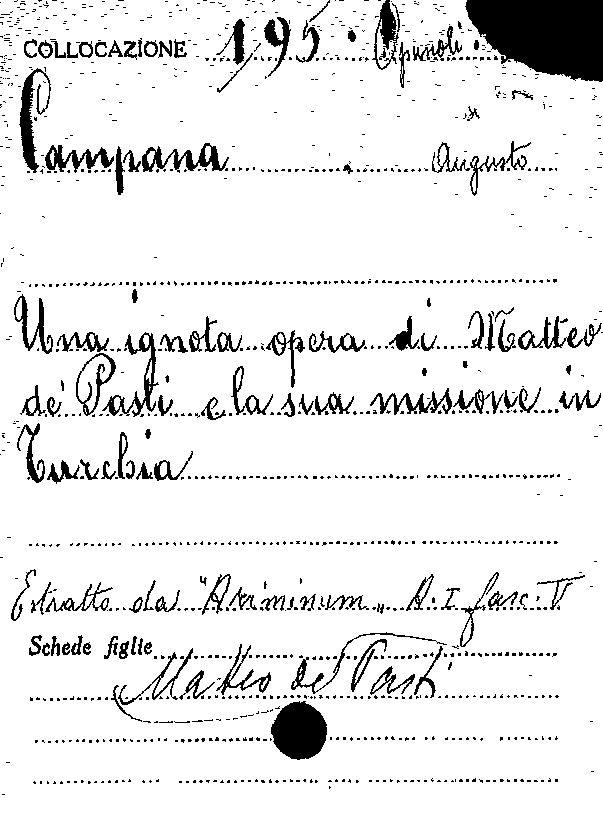 COLLOCAZIONE 195. Opuscoli.
Campana. Augusto
Una ignota opera di Matteo
de' Pasti e la sua missione in
Turchia
Estratto da "Ariminum" A. I fasc. V
Schede figlie
Matteo de' Pasti